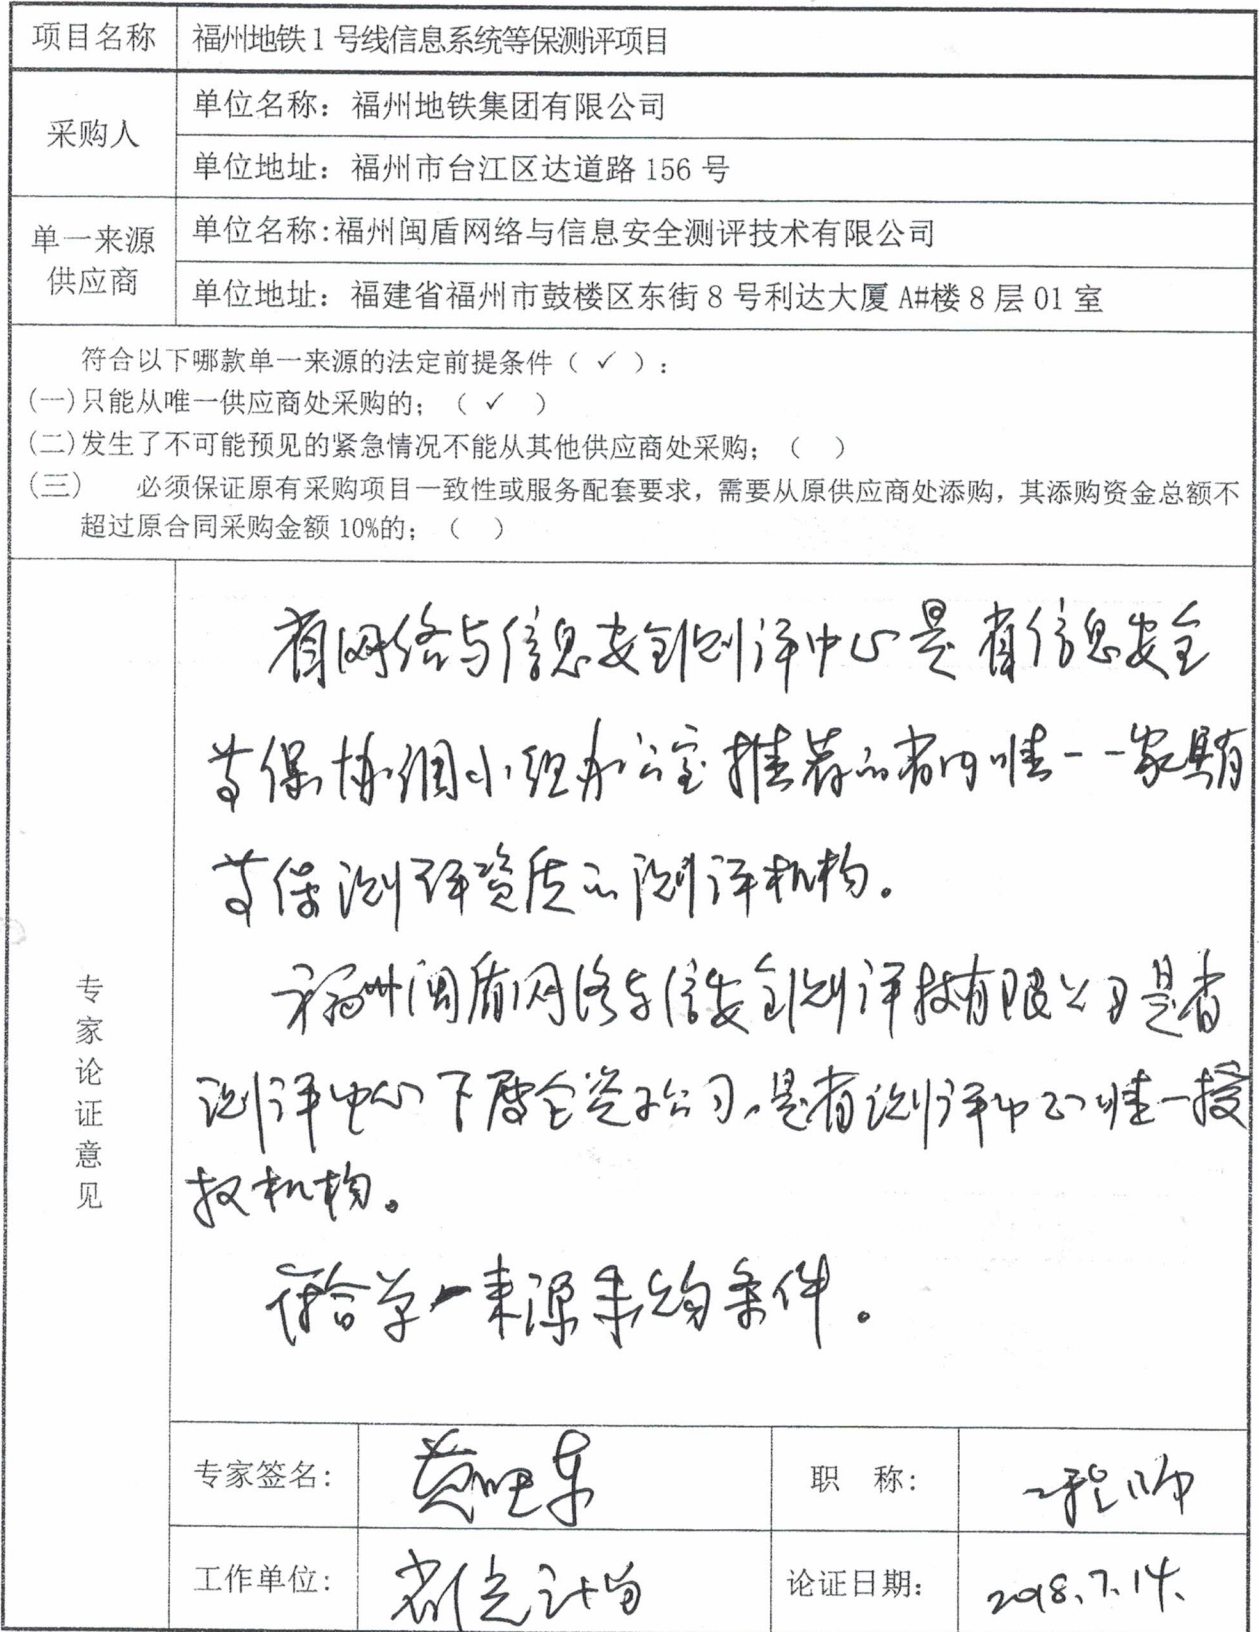 项目名称 福州地铁1号线信息系统等保测评项目
采购人 单位名称：福州地铁集团有限公司
单位地址：福州市台江区达道路156号
单一来源供应商 单位名称:福州闽盾网络与信息安全测评技术有限公司
单位地址：福建省福州市鼓楼区东街8号利达大厦A#楼8层01室
符合以下哪款单一来源的法定前提条件（✓）：
(一)只能从唯一供应商处采购的；（✓ ）
(二)发生了不可能预见的紧急情况不能从其他供应商处采购；（ ）
(三) 必须保证原有采购项目一致性或服务配套要求，需要从原供应商处添购，其添购资金总额不
超过原合同采购金额10%的；（ ）
专家论证意见
省网络与信息安全测评中心是省信息安全
等保协调小组办公室推荐的省内唯一一家具有
等保测评资质的测评机构。
福州闽盾网络与信安全测评技有限公司是省
测评中心下属全资子公司，是省测评中心唯一授
权机构。
符合单一来源采购条件。
专家签名: 黄 东 职 称: 工程师
工作单位: 省 论证日期: 2018.7.14.